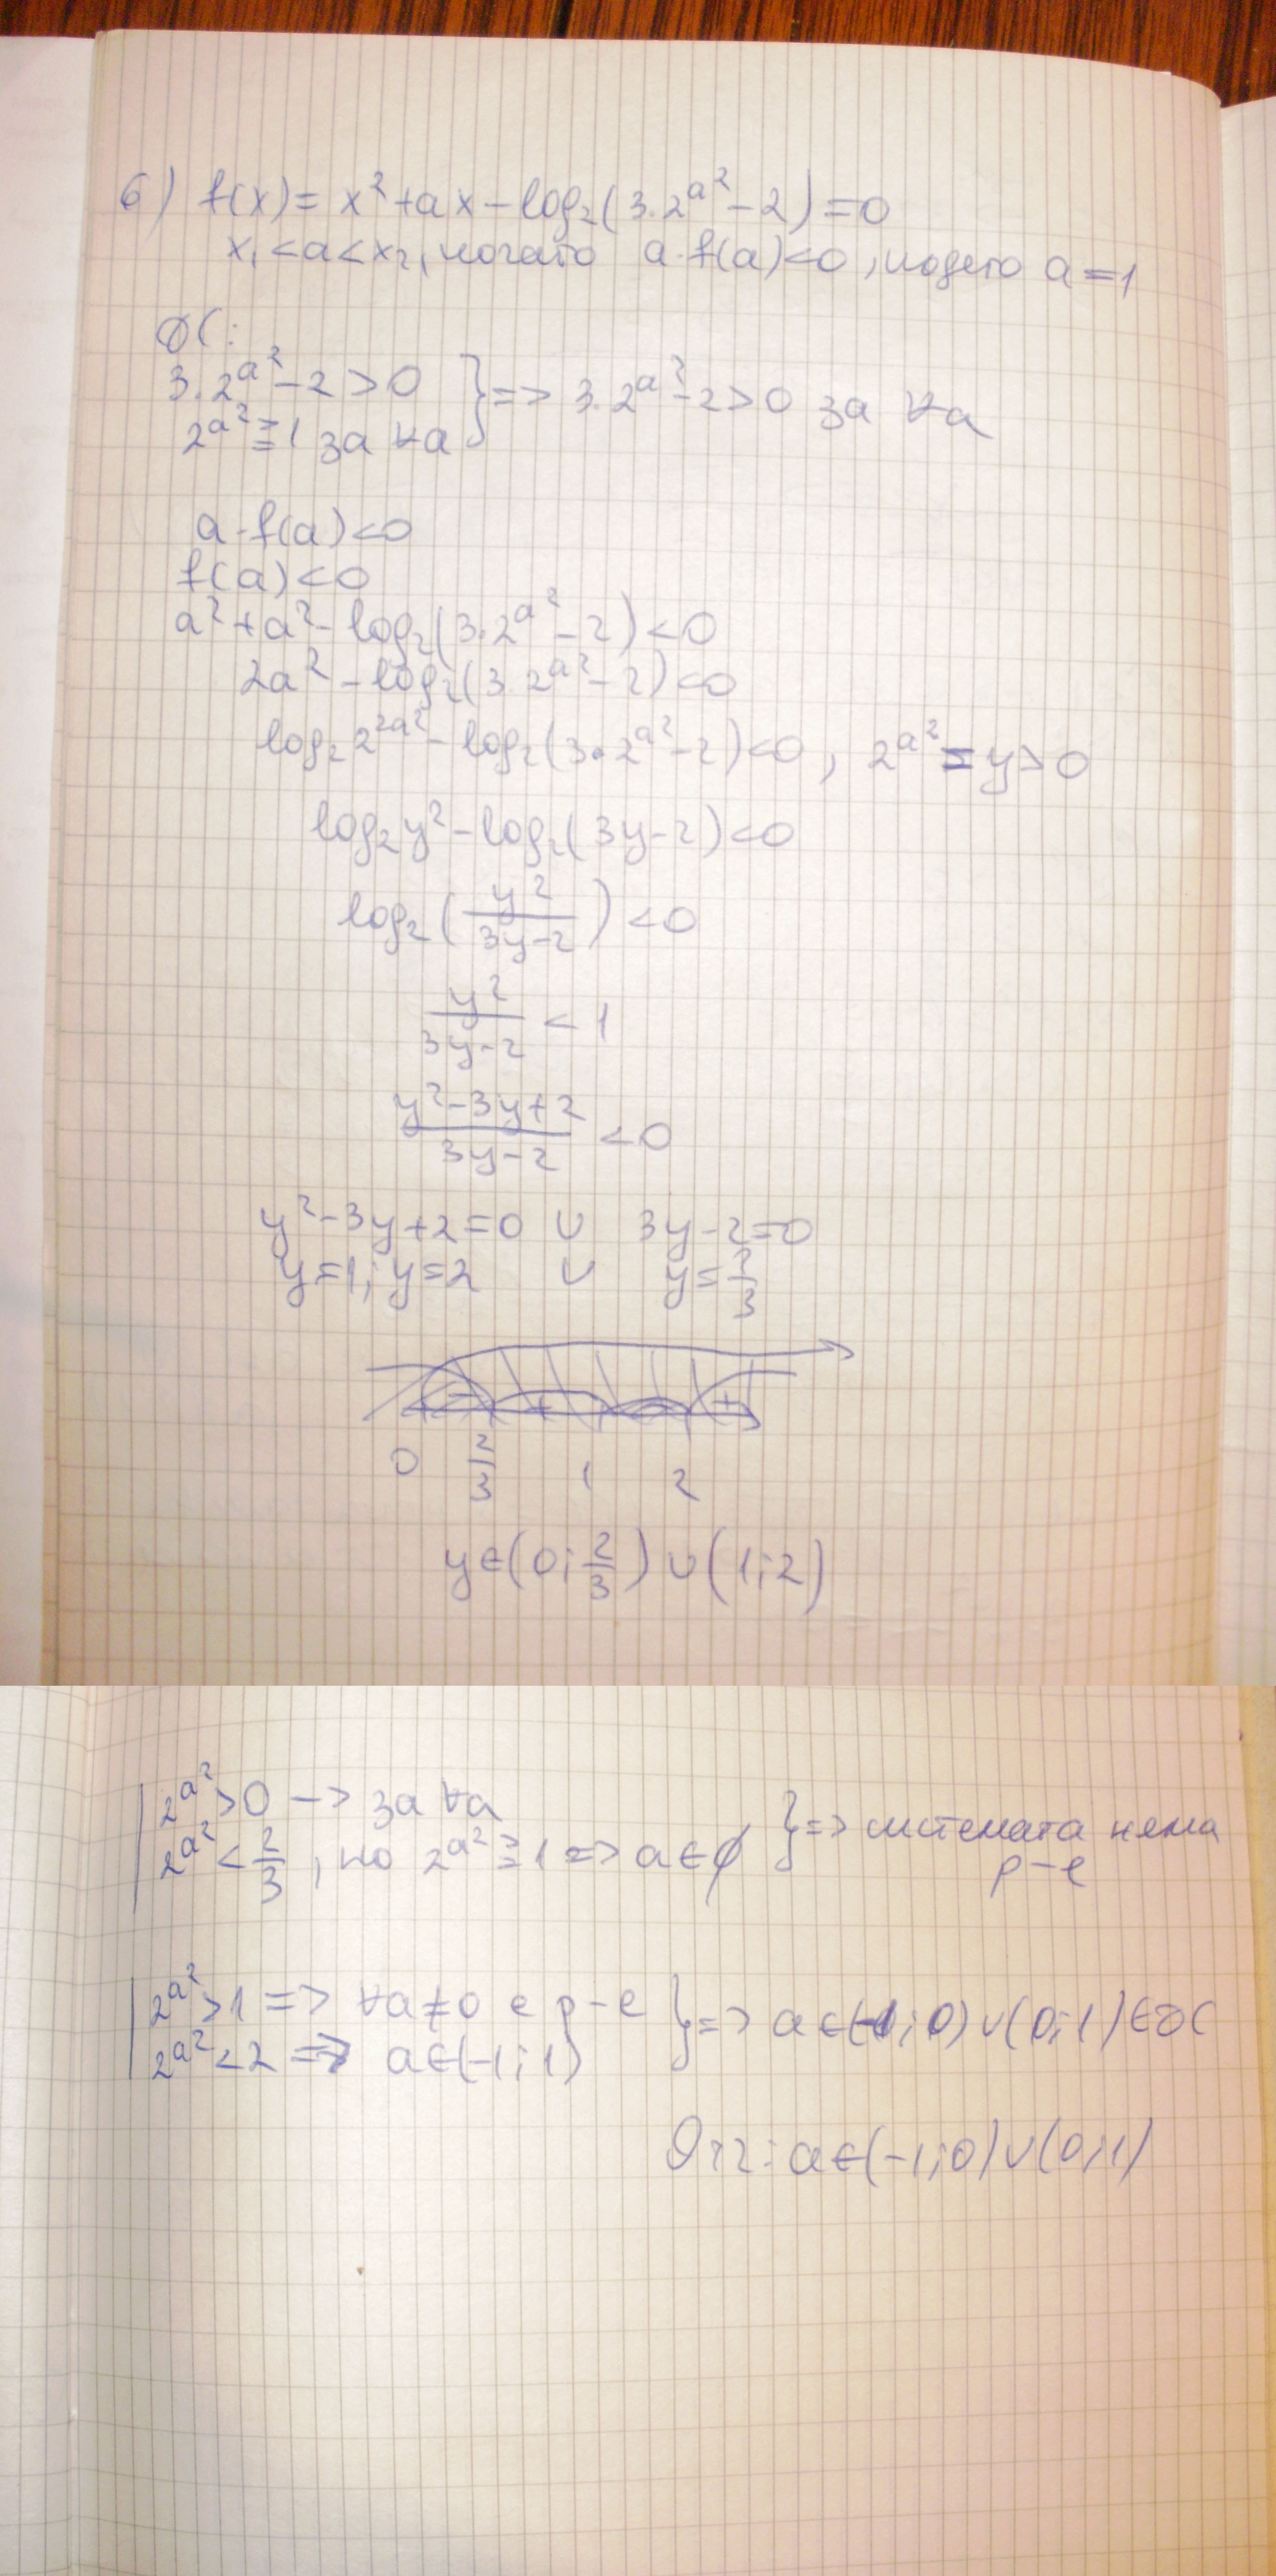 6) f(x) = x² + ax - log₂(3.2^(a²) - 2) = 0
x₁ < a < x₂, когато a.f(a) < 0, където a = 1
ДС:
3.2^(a²) - 2 > 0 } => 3.2^(a²) - 2 > 0 за ∀a
2^(a²) ≥ 1 за ∀a
a.f(a) < 0
f(a) < 0
a² + a² - log₂(3.2^(a²) - 2) < 0
2a² - log₂(3.2^(a²) - 2) < 0
log₂ 2^(2a²) - log₂(3.2^(a²) - 2) < 0, 2^(a²) = y > 0
log₂ y² - log₂(3y - 2) < 0
log₂(y²/(3y - 2)) < 0
y²/(3y - 2) < 1
(y² - 3y + 2)/(3y - 2) < 0
y² - 3y + 2 = 0 ∪ 3y - 2 = 0
y = 1; y = 2 ∪ y = 2/3
- + - +
0 2/3 1 2
y ∈ (0; 2/3) ∪ (1; 2)
| 2^(a²) > 0 -> за ∀a
| 2^(a²) < 2/3, но 2^(a²) ≥ 1 => a ∈ ∅ } => системата няма
р-е
| 2^(a²) > 1 => ∀a ≠ 0 е р-е } => a ∈ (-1; 0) ∪ (0; 1) ∈ ДС
| 2^(a²) < 2 => a ∈ (-1; 1)
Отг: a ∈ (-1; 0) ∪ (0; 1)